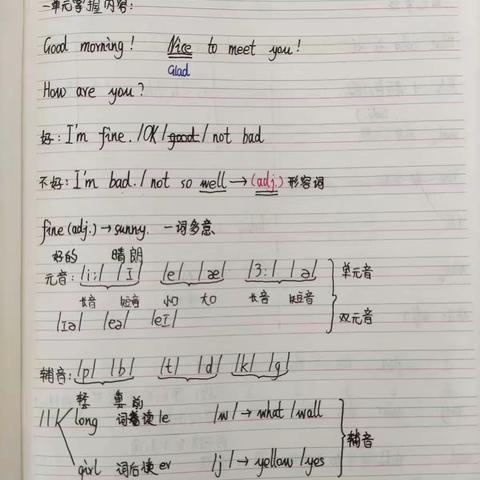 一单元掌握内容：
Good morning! Nice to meet you!
Glad
How are you?
好：I'm fine. /OK/good/ not bad
不好：I'm bad. / not so well → (adj.) 形容词
fine (adj.) → sunny. 一词多意
好的 晴朗
元音：/i:/ /ɪ/ /e/ /æ/ /ɜ:/ /ə/ 单元音
长音 短音 小口 大口 长音 短音
/ɪə/ /eə/ /eɪ/ 双元音
辅音：/p/ /b/ /t/ /d/ /k/ /g/
轻 前
/l/ long 词 读 le /w/ → what /wall
辅音
girl 词后读 er /j/ → yellow /yes